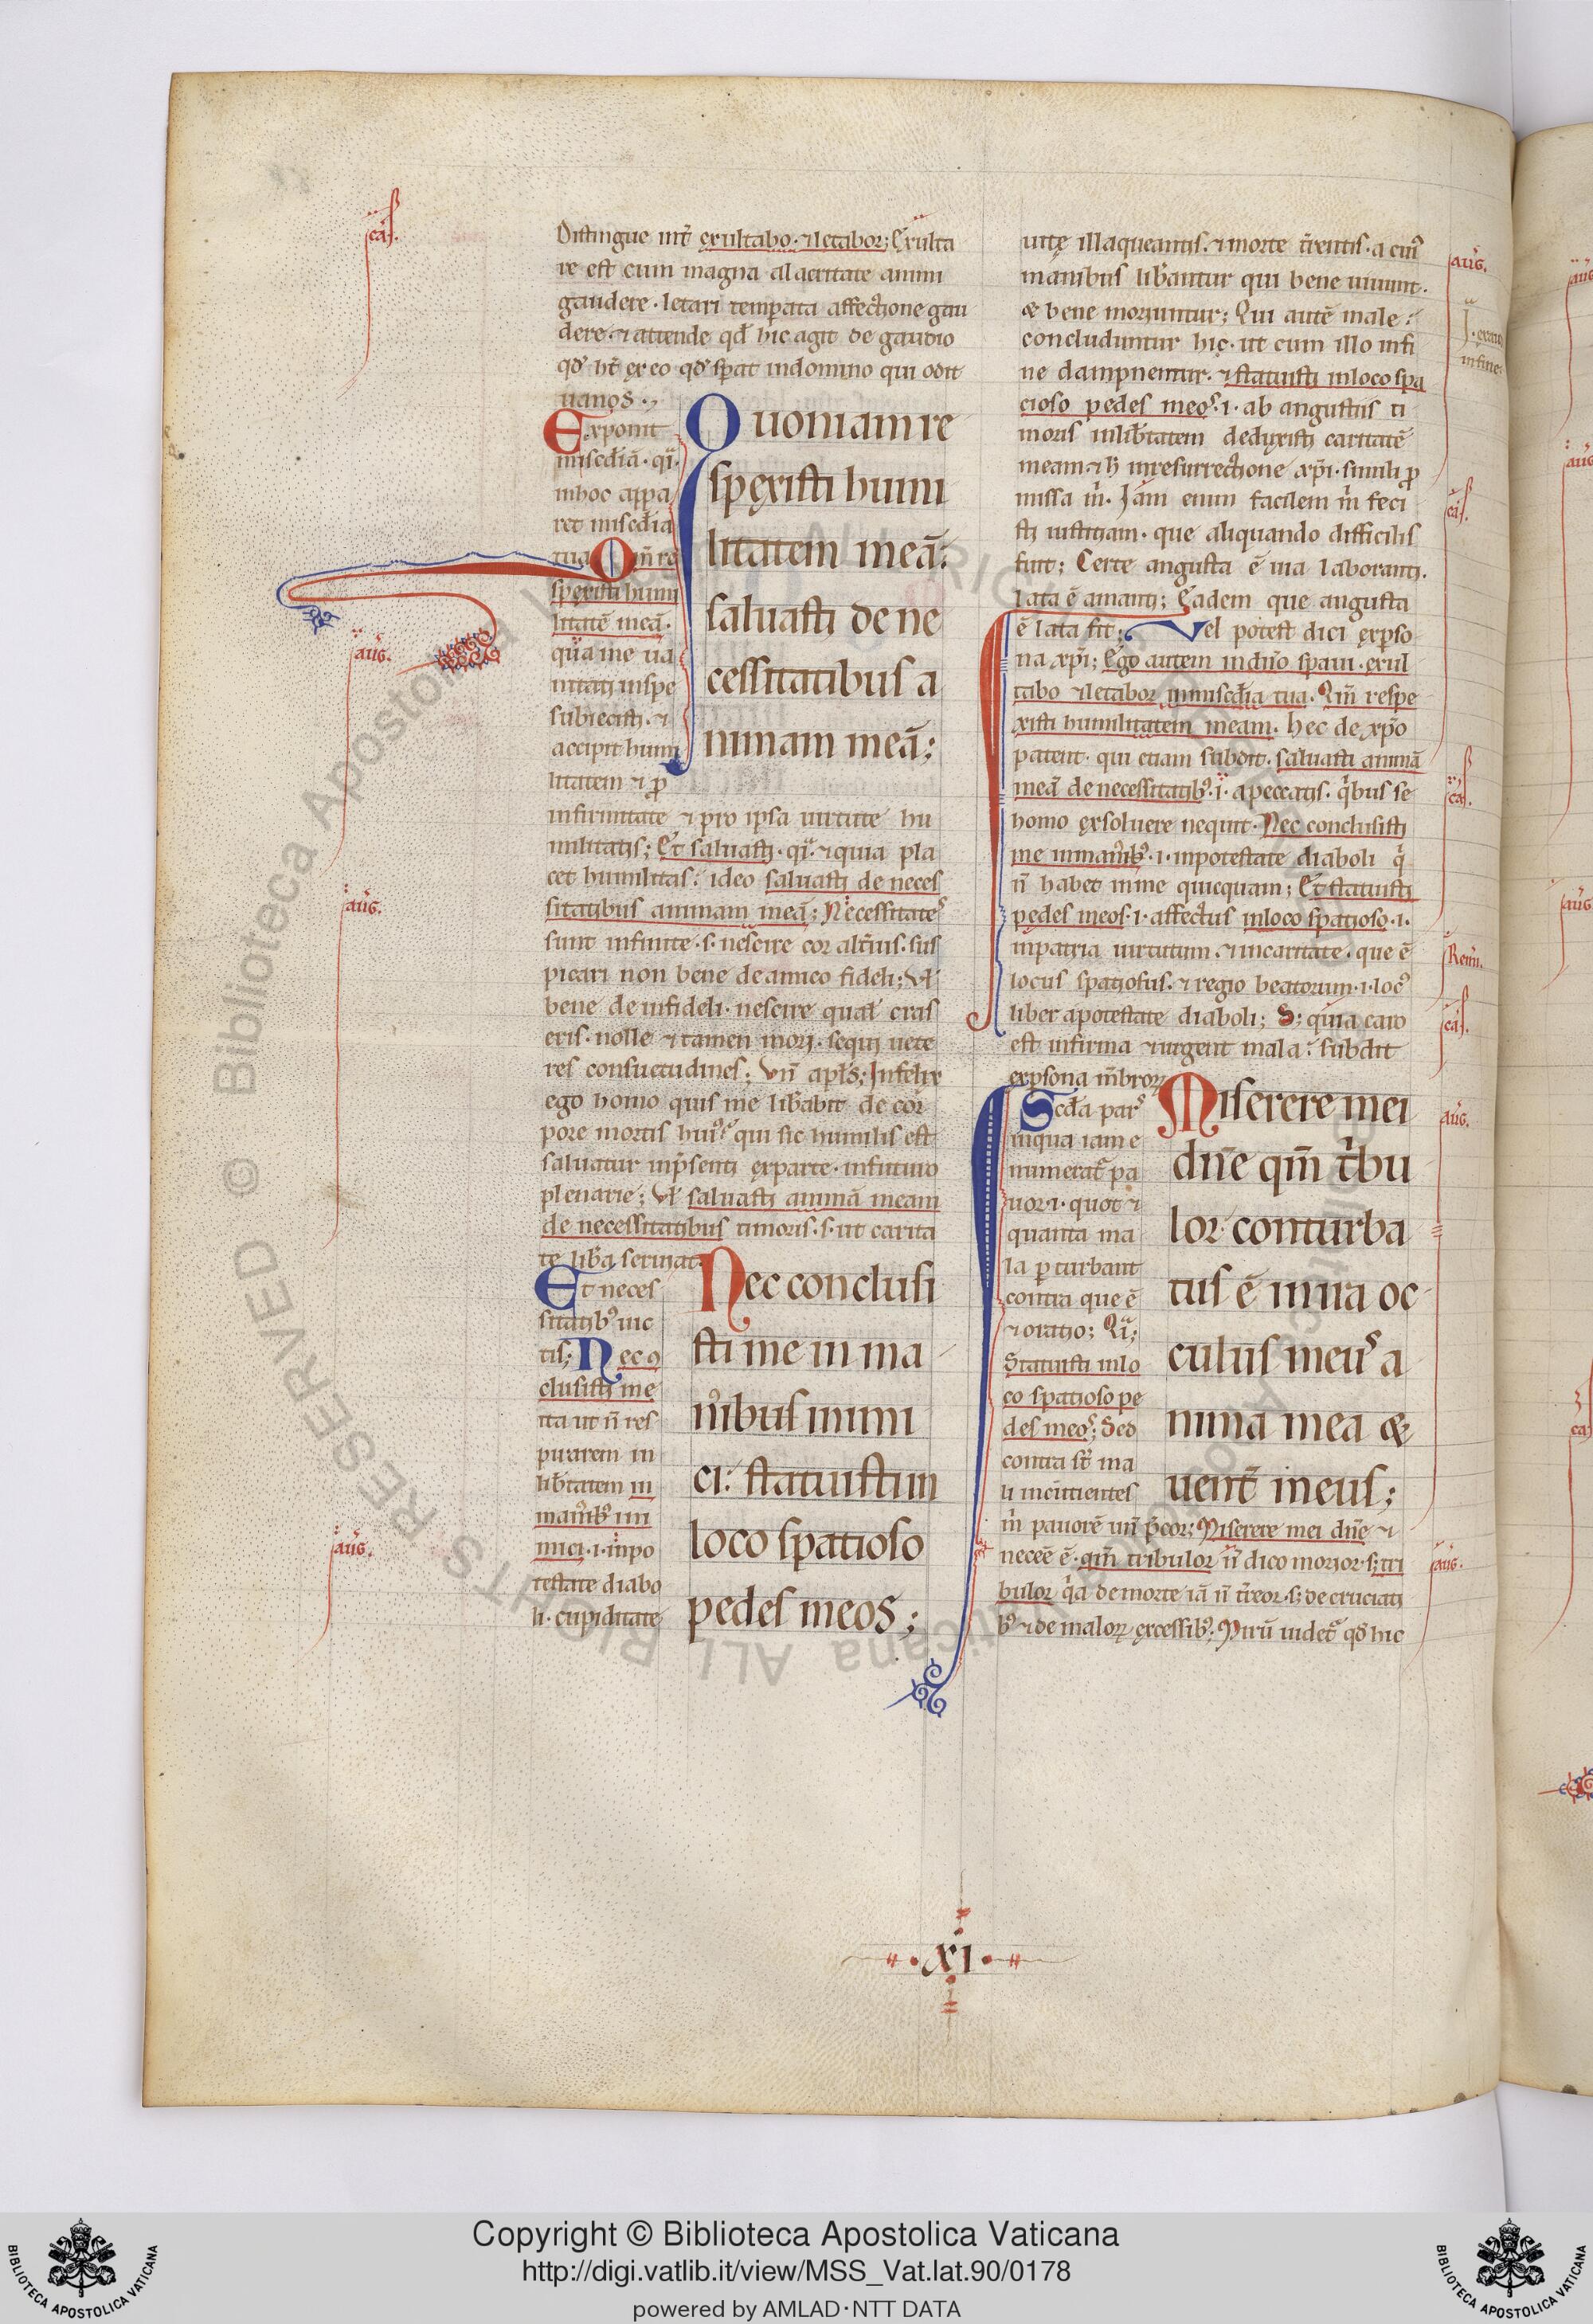 Distingue int̄ exultabo. ⁊ letabor; Exulta
re est cum magna alacritate animi
gaudere. letari temp̄ata affectione gau
dere. ⁊ attende qd̄ hic agit de gaudio
qd̓ ht̄ ex eo qd̓ sꝑat in domino qui odit
uanos.
Exponit
mis̄cd̄iā. qͥ.
in hoc appa
ret mis̄cd̄ia
tua Qm̄ re
spexisti humi
litatē meā.
qua me ua
nitati in spe
subiecisti. ⁊
accipit humi
litatem ⁊ ꝓ
infirmitate ⁊ pro ipsa uirtute hu
militatis; Et saluasti. qͥ. ⁊ quia pla
cet humilitas. ideo saluasti de neces
sitatibus animam meā; Necessitates
sunt infinite. s. nescire cor alt̄ius. sus
picari non bene de amico fideli; Vl̄
bene de infideli. nescire qual̄ cras
eris. nolle ⁊ tamen mori. sequi uete
res consuetudines; Vn̄ apl̄s; Infelix
ego homo quis me lib̄abit de cor
pore mortis huiꝰ. qui sic humilis est
saluatur in p̄senti ex parte. in futuro
plenarie; Vl̄ saluasti animā meam
de necessitatibus timoris. s. ut carita
te lib̄a seruiat.
Quoniam re
spexisti humi
litatem meā:
saluasti de ne
cessitatibus a
nimam meā;
Et neces
sitatibꝰ uic
tis; Nec ꝯ
clusisti me
ita ut n̄ res
pirarem in
lib̄tatem in
manibꝰ ini
mici .i. in po
testate diabo
li. cupiditate
Nec conclusi
sti me in ma
nibus inimi
ci: statuisti in
loco spatioso
pedes meos;
uitę illaqueantis. ⁊ morte t̄rentis. a cuiꝰ
manibus lib̄antur qui bene uiuunt.
& bene moriuntur; Qui autē male:
concluduntur hic. ut cum illo in fi
ne dampnentur. ⁊ statuisti in loco spa
cioso pedes meos. i. ab angustiis ti
moris in lib̄tatem deduxisti caritatē
meam ⁊ h̄ in resurrectione xp̄i. simili ꝓ
missa m̄. Iam enim facilem m̄ feci
sti iustitiam. que aliquando difficilis
fuit; Certe angusta ē uia laboranti.
lata ē amanti; Eadem que angusta
ē lata fit; Vel potest dici ex ꝑso
na xp̄i; Ego autem in dn̄o sꝑaui. exul
tabo ⁊ letabor in mis̄cd̄ia tua. Qm̄ respe
xisti humilitatem meam. hec de xp̄o
patent. qui etiam subdit. saluasti animā
meā de necessitatibꝰ .i. a peccatis. qͥbus se
homo exsoluere nequit. Nec conclusisti
me in manibꝰ .i. in potestate diaboli qͥ
n̄ habet in me quicquam; Et statuisti
pedes meos .i. affectus in loco spatioso .i.
in patria uirtutum. ⁊ in caritate. que ē
locus spatiosus. ⁊ regio beatorum .i. locꝰ
liber a potestate diaboli; S; quia caro
est infirma ⁊ urgent mala: subdit
ex ꝑsona m̄broꝝ
Scd̄a pars
in qua iam e
numerat̄ pa
uor .i. quot ⁊
quanta ma
la ꝑturbant
contra que ē
⁊ oratio; Qͥ;
Statuisti in lo
co spatioso pe
des meos; Sed
contra st̄ ma
li incutientes
m̄ pauorē un̄ p̄cor; Miserere mei dn̄e ⁊
neceē ē. qm̄ tribulor n̄ dico morior. s; tri
bulor qͥa de morte iā n̄ t̄reor. s; de cruciati
bꝰ ⁊ de maloꝝ excessibꝰ; Mirū uidet̄ qd̓ hic
Miserere mei
dn̄e qm̄ t̄bu
lor: conturba
tus ē in ira oc
culus meus a
nima mea &
uent̄ meus;
caſ.
aug̅.
aug̅.
aug̅.
aug̅.
caſ.
caſ.
Remi.
caſ.
aug̅.
aug̅.
.xi.
Copyright © Biblioteca Apostolica Vaticana
http://digi.vatlib.it/view/MSS_Vat.lat.90/0178
powered by AMLAD·NTT DATA
BIBLIOTECA APOSTOLICA VATICANA
BIBLIOTECA APOSTOLICA VATICANA